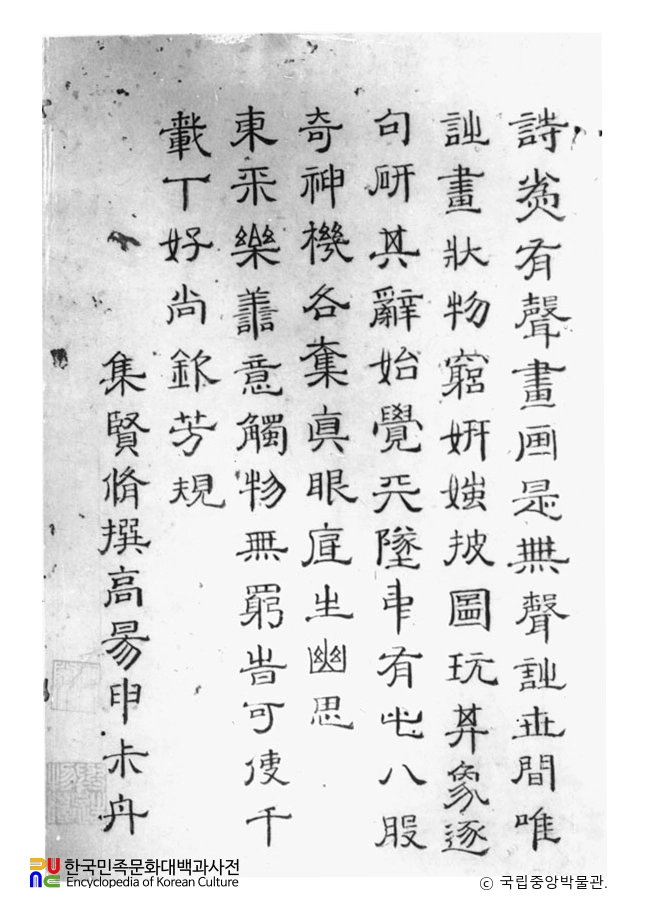 詩為有聲畫画是無聲詩世間唯
詩畫狀物窮妍媸披圖玩其象逐
句研其辭始覺天墬中有此八段
奇神機各奪真眼底生幽思
東平樂善意觸物無窮旹可使千
載丅好尚欽芳規
集賢脩撰高昜申尗舟
한국민족문화대백과사전
Encyclopedia of Korean Culture
© 국립중앙박물관.